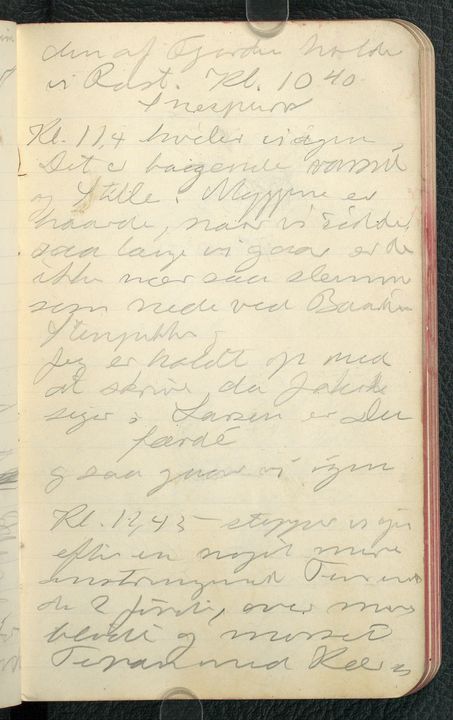 den af Fjorden holdt
vi Rast. Kl. 10 40
Snespurv
Kl. 11,4 hviler vi igen
Det er bagende varmt
og stille. Myggene er
haarde, naar vi sidder,
saa længe vi gaar er de
ikke nær saa slemme
som nede ved Baaden
Jeg er holdt op med
at skrive, da Jakob
siger: Larsen er Du
færdi
og saa gaar vi igen
Kl. 12,45 stopper vi igen
efter en noget mere
anstrengende Tur end
de 2 første, over mere
blødt og morset
Terræn med Kær